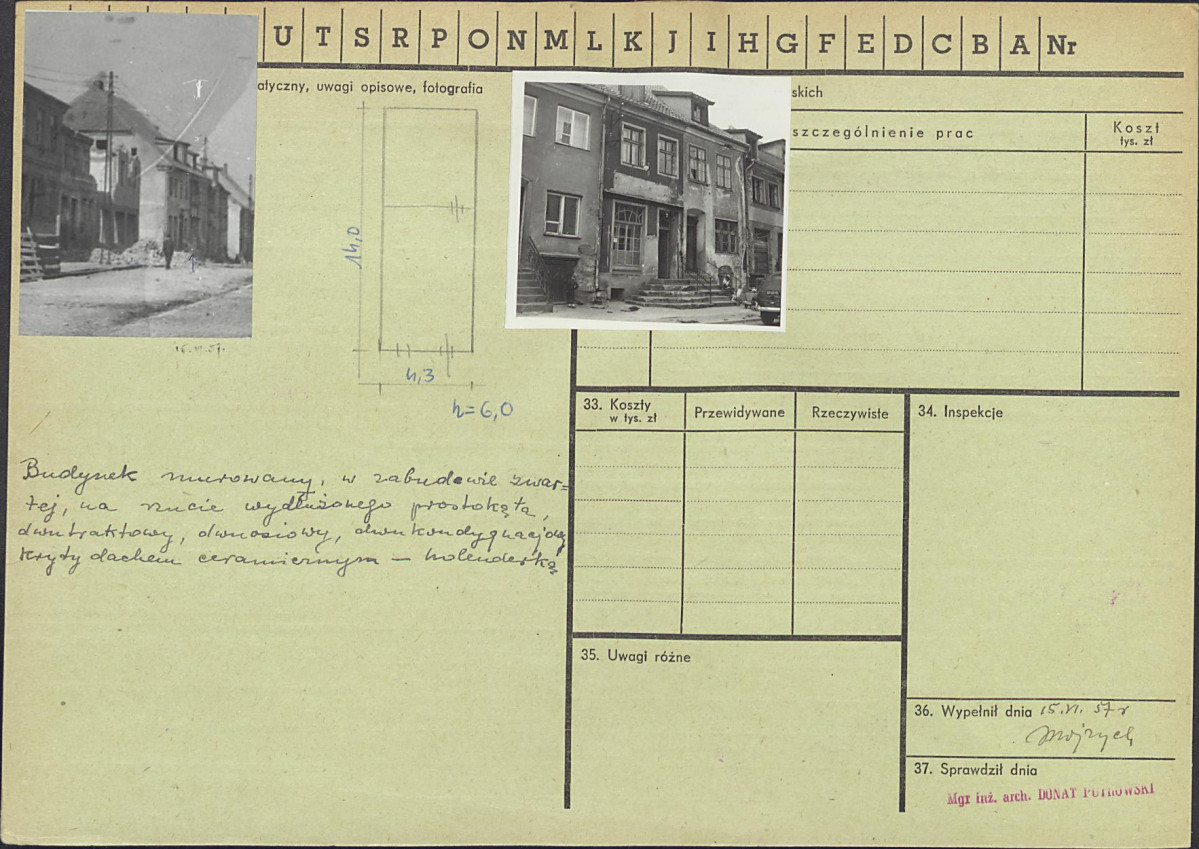 U T S R P O N M L K J I H G F E D C B A Nr
atyczny, uwagi opisowe, fotografia
skich
szczególnienie prac
Koszt
tys. zł
14,0
4,3
h=6,0
15.VI.57.
Budynek murowany, w zabudowie zwar=
tej, na rzucie wydłużonego prostokąta,
dwutraktowy, dwuosiowy, dwukondygnacjowy
kryty dachem ceramicznym – holenderką
33. Koszty
w tys. zł
Przewidywane
Rzeczywiste
34. Inspekcje
35. Uwagi różne
36. Wypełnił dnia 15.VI.57 r
37. Sprawdził dnia
Mgr inż. arch. DONAT